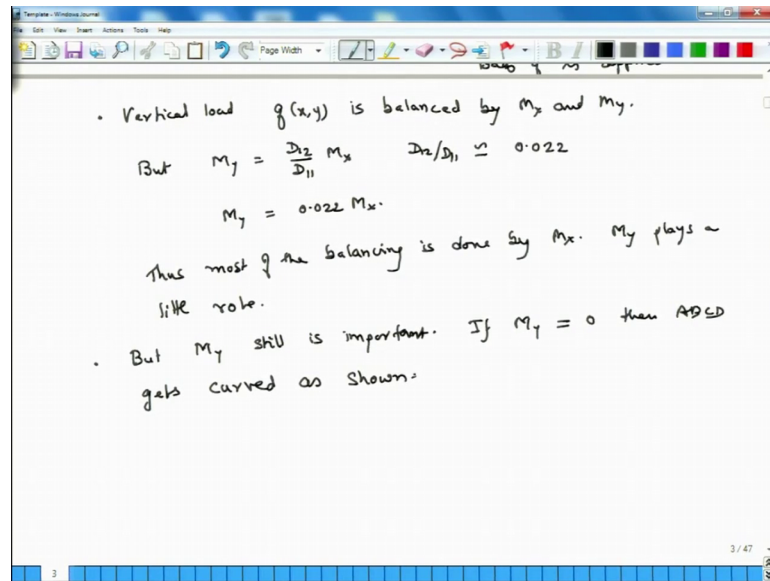 Template - Windows Journal
File Edit View Insert Actions Tools Help
Page Width
B I
• Vertical load q(x,y) is balanced by Mx and My.
But My = D12/D11 Mx D12/D11 ≃ 0.022
My = 0.022 Mx.
Thus most of the balancing is done by Mx. My plays a
little role.
• But My still is important. If My = 0 then ABCD
gets curved as shown.
3 / 47
3